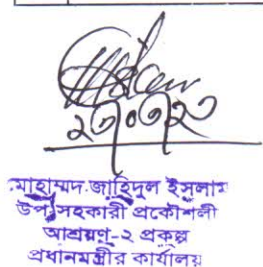 ২৩/০৩/২৩
মোহাম্মদ জাহিদুল ইসলাম
উপ-সহকারী প্রকৌশলী
আশ্রয়ণ-২ প্রকল্প
প্রধানমন্ত্রীর কার্যালয়